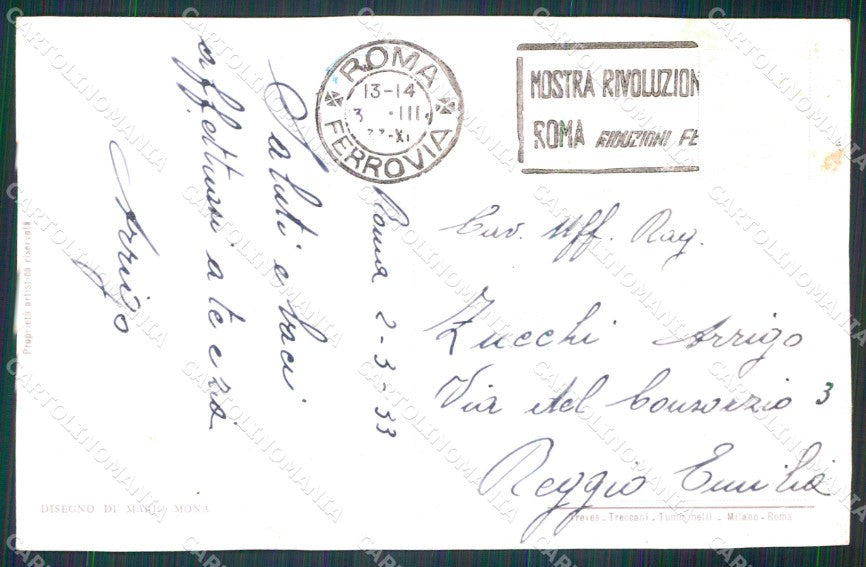 ROMA
13-14
3 . III.
33-XI
FERROVIA
MOSTRA RIVOLUZION
ROMA RIDUZIONI FE
Roma 2-3-33
Saluti e baci
affettuosi a te e zia
Arrigo
Cav. Uff. Rag.
Zucchi Arrigo
Via del Consorzio 3
Reggio Emilia
Proprietà artistica riservata
DISEGNO DI MARIO MONA
Treves - Treccani - Tumminelli - Milano - Roma
CARTOLINOMANIA